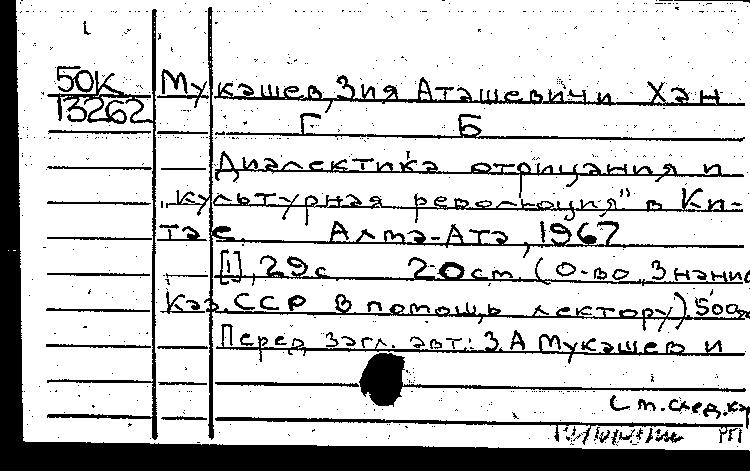 1
50К Мукашев, Зия Аташевич и Хан
13262
Г Б
Диалектика отрицания и
„культурная революция" в Ки-
тае. Алма-Ата, 1967
[1], 29 с. 20 см. (О-во "Знание"
Каз. ССР В помощь лектору). 500
Перед загл. авт.: З.А Мукашев и
См. след. к
РП